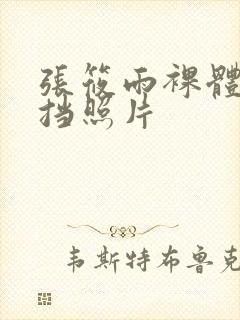 張筱雨裸體
挡照片
韦斯特布鲁克